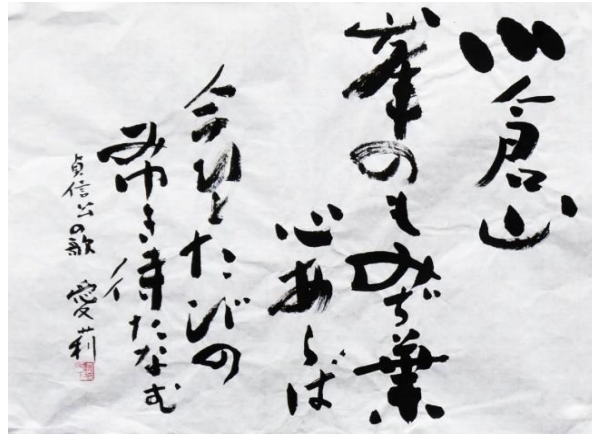 小倉山
峯のもみぢ葉
心あらば
今ひとたびの
みゆき待たなむ
貞信公の歌 愛莉